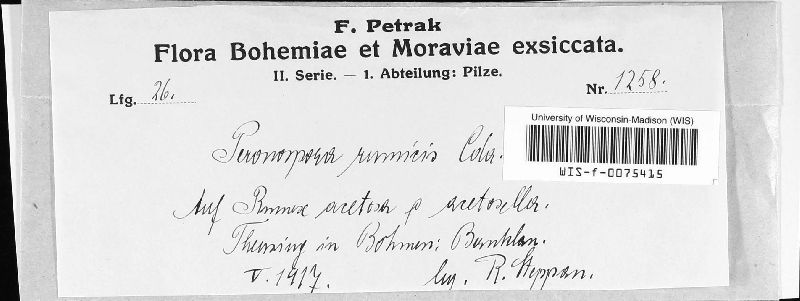 F. Petrak
Flora Bohemiae et Moraviae exsiccata.
II. Serie. — 1. Abteilung: Pilze.
Lfg. 26.
Nr. 1258.
University of Wisconsin-Madison (WIS)
WIS-f-0075415
Peronospora rumicis Cda.
Auf Rumex acetosa & acetosella.
Theusing in Böhmen:
V. 1917. leg. R. Steppan.